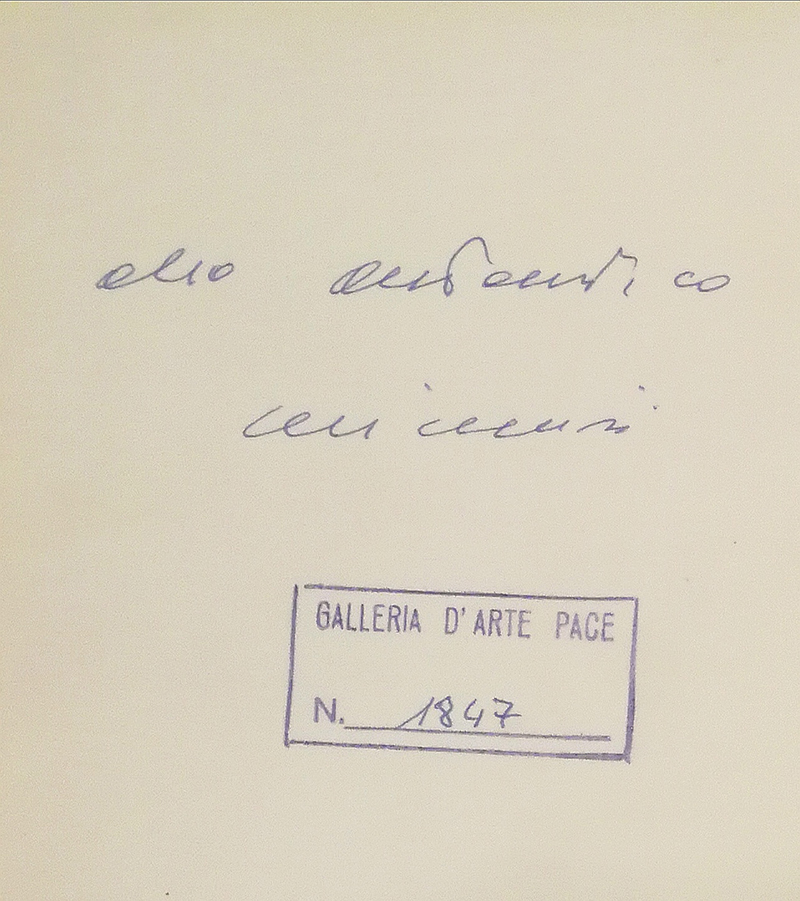 olio autentico
GALLERIA D'ARTE PACE
N. 1847